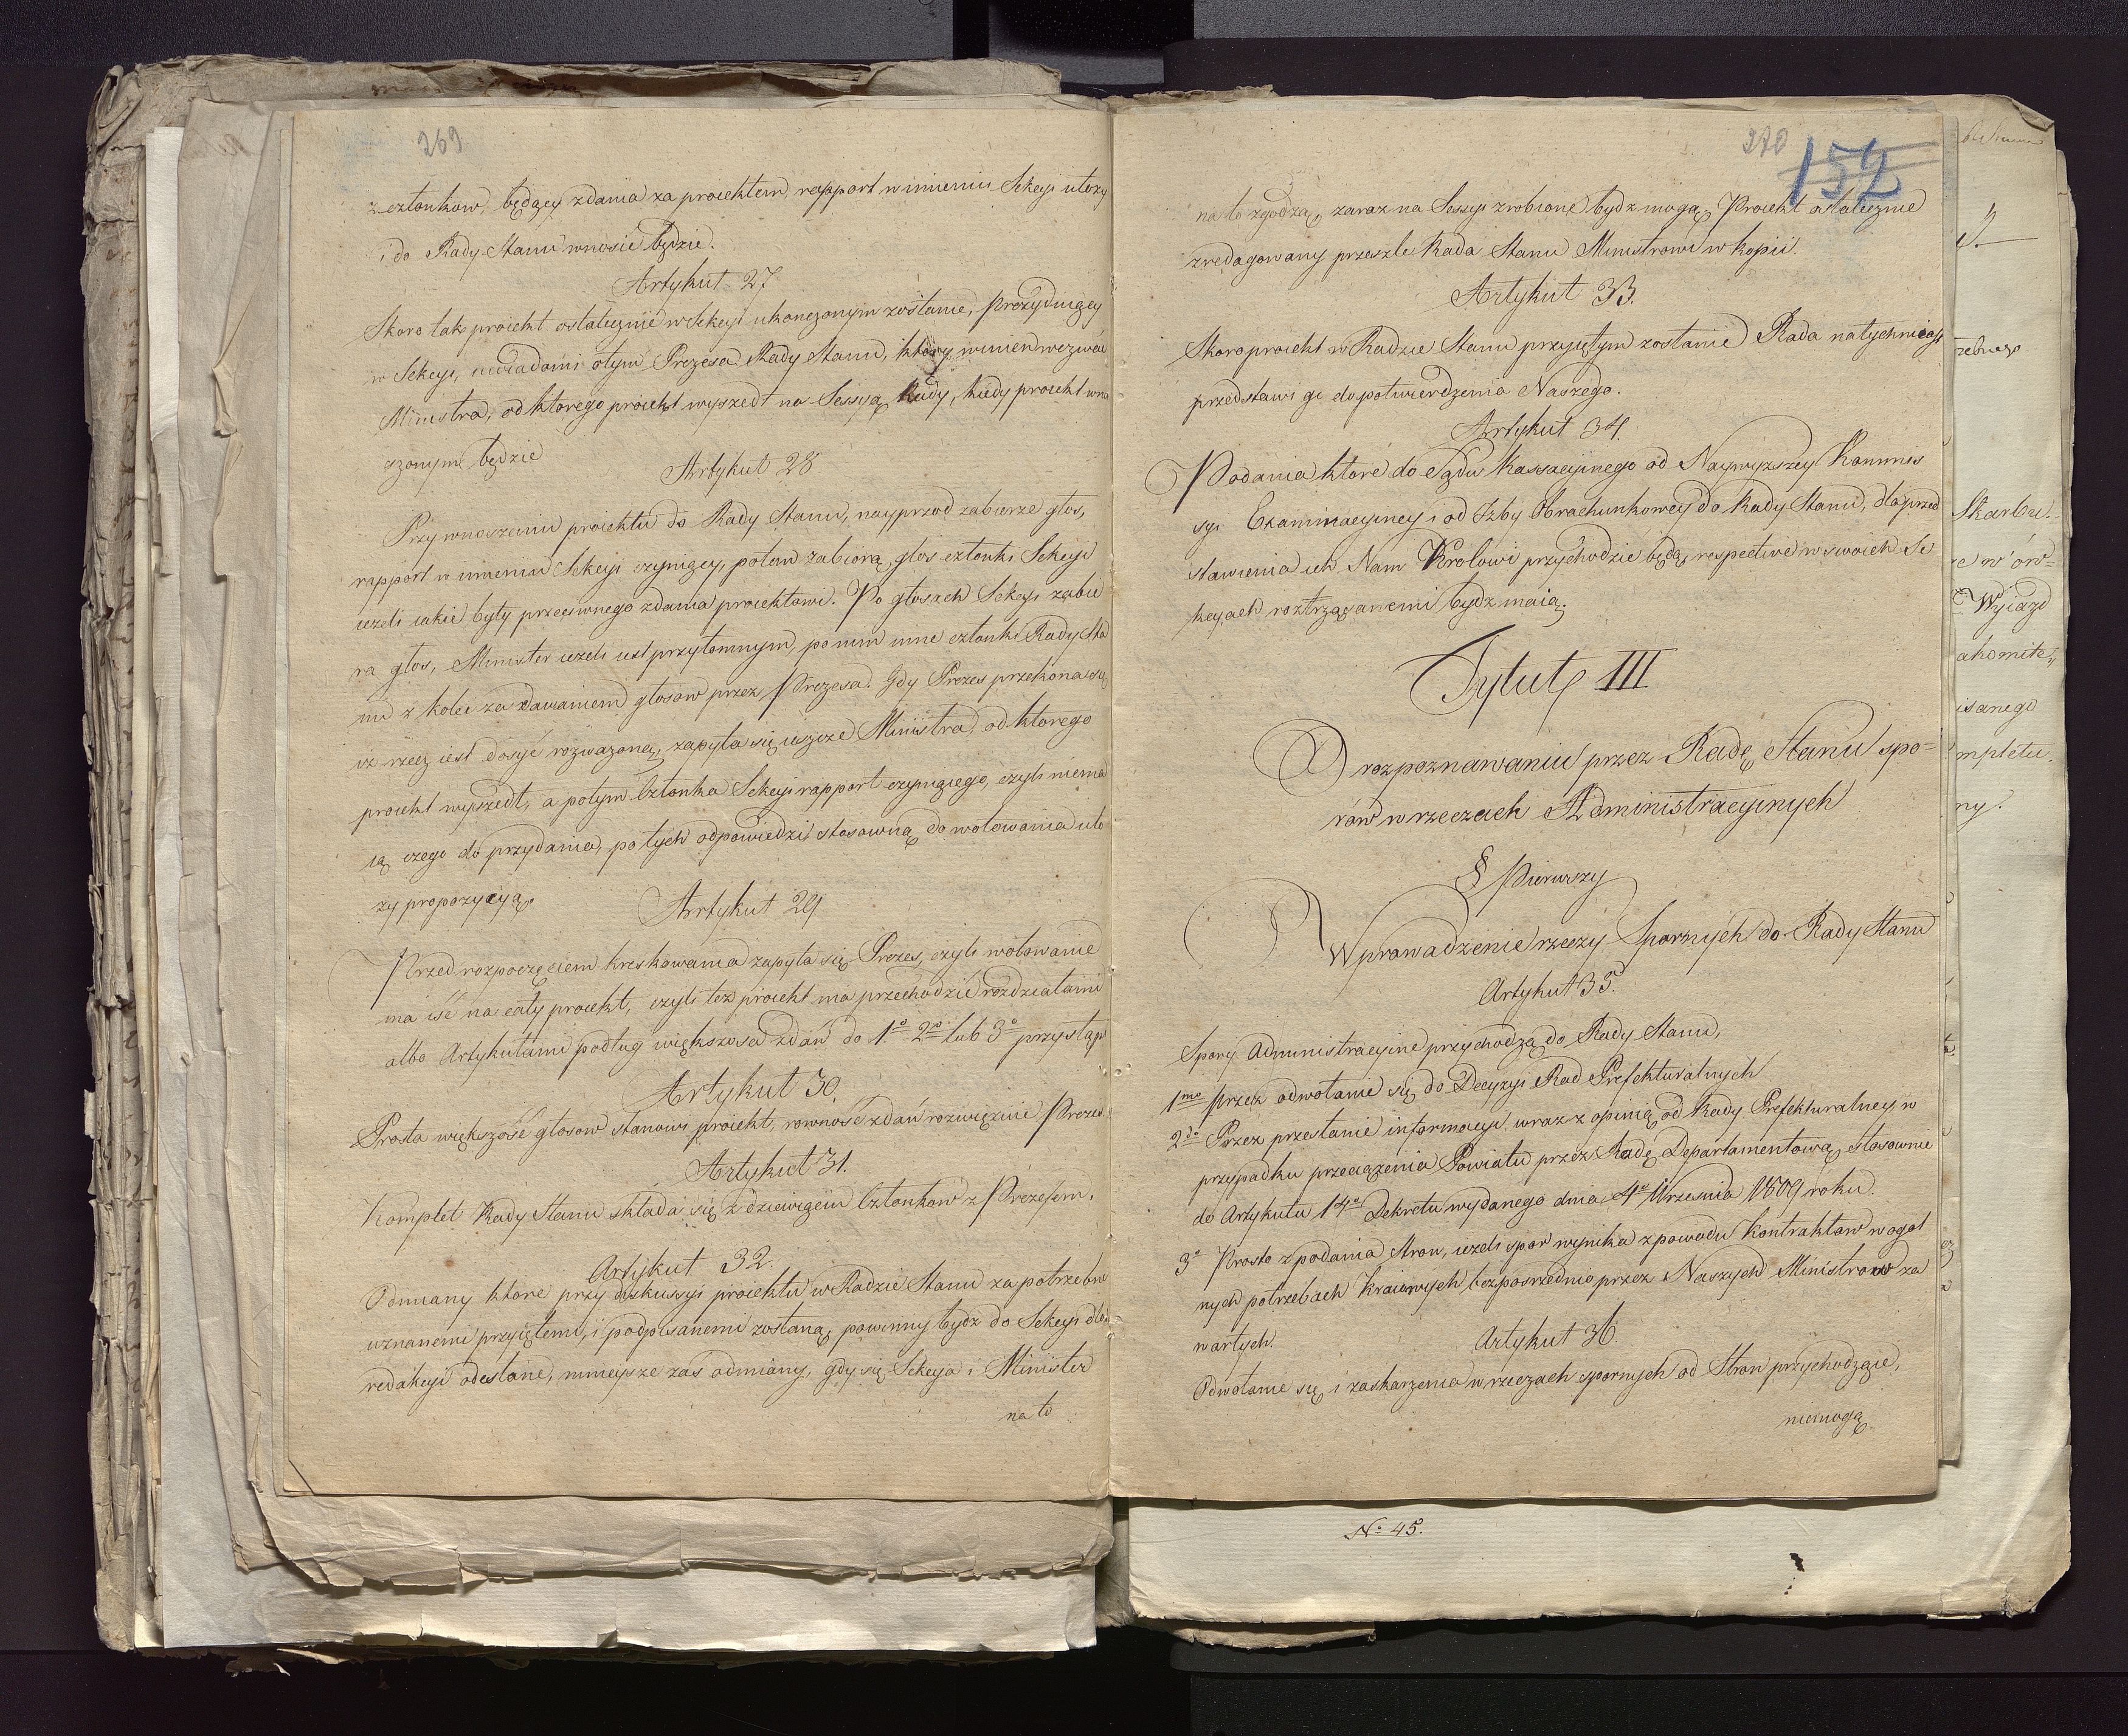 269
z członkow, będący zdania za proiektem, rapport w imieniu Sekcyi ułoży
i do Rady Stanu wnosić będzie.
Artykuł 27
Skoro tak proiekt ostatecznie w Sekcyi ukonczonym zostanie, prezyduiący
w Sekcyi, uwiadomi o tym Prezesa Rady Stanu, który winien wezwać
Ministra, od ktorego proiekt wyszedł na Sessyą Rady, kiedy proiekt wno
szonym będzie
Artykuł 28
Przy wnoszeniu proiektu do Rady Stanu, nayprzod zabierze głos,
rapport w imieniu Sekcyi czyniący, potem zabiorą głos członki Sekcyi
ieżeli iakie były przeciwnego zdania proiektowi. Po głosach Sekcyi zabie
ra głos, Minister ieżeli iest przytomnym, po nim inne członki Rady Sta
nu z kolei za dawaniem głosow przez Prezesa. Gdy Prezes przekona się
iż rzecz iest dosyć rozważoną, zapyta się ieszcze Ministra, od ktorego
proiekt wyszedł, a potym Członka Sekcyi rapport czyniącego, czyli niema
ią czego do przydania, po tych odpowiedzi stosowną do wotowania uło
ży propozycyą.
Artykuł 29
Przed rozpoczęciem kreskowania zapyta się Prezes, czyli wotowanie
ma iść na cały proiekt, czyli też proiekt ma przechodzić rozdziałami
albo Artykułami podług większości zdań do 1º 2º lub 3º przystąp
Artykuł 30.
Prosta większość głosow stanowi proiekt, rowność zdań rozwiąznie Prezes
Artykuł 31.
Komplet Rady Stanu składa się z dziewięciu Członkow z Prezesem.
Artykuł 32.
Odmiany ktore przy diskussyi proiektu w Radzie Stanu za potrzebne
uznanemi przyiętemi, i podpisanemi zostaną, powinny bydz do Sekcyi dla
redakcyi odesłane, mnieysze zaś odmiany, gdy się Sekcya i Minister
na to
270
152
na to zgodzą, zaraz na Sessyi zrobione bydz mogą. Proiekt ostatecznie
zredagowany prześle Rada Stanu Ministrowi w kopii.
Artykuł 33.
Skoro proiekt w Radzie Stanu przyiętym zostanie Rada natychmiast
przedstawi go do potwierdzenia Naszego.
Artykuł 34.
Podania ktore do Sądu Kassacyinego od Naywyższey Kommis
syi Examinacyiney i od Izby Obrachunkowey do Rady Stanu, dla przed
stawienia ich Nam Krolowi przychodzić będą, respective w swoich Se
kcyach roztrząsanemi bydz maią.
Tytuł III
O rozpoznawaniu przez Radę Stanu spo=
rów w rzeczach Administracyinych
§ Pierwszy
Wprowadzenie rzeczy Spornych do Rady Stanu
Artykuł 35.
Spory Administracyine przychodzą do Rady Stanu,
1mo przez odwołanie się do Decyzyi Rad Prefekturalnych
2do Przez przesłanie informacyi wraz z opinią od Rady Prefekturalney w
przypadku przeciążenia Powiatu przez Radę Departamentową, stosownie
do Artykułu 14go Dekretu wydanego dnia 4go Września 1809 roku.
3º Prosto z podania Stron, ieżeli spor wynika z powodu kontraktow w ogol
nych potrzebach kraiowych bezposrednio przez Naszych Ministrow za
wartych.
Artykuł 36.
Odwołanie się i zaskarżenia w rzeczach spornych od Stron przychodzące,
niemogą
No 45.
rebnego
Skarbu.
e w ów=
Wyiazd
akomite
isanego
mpletu.
ny.